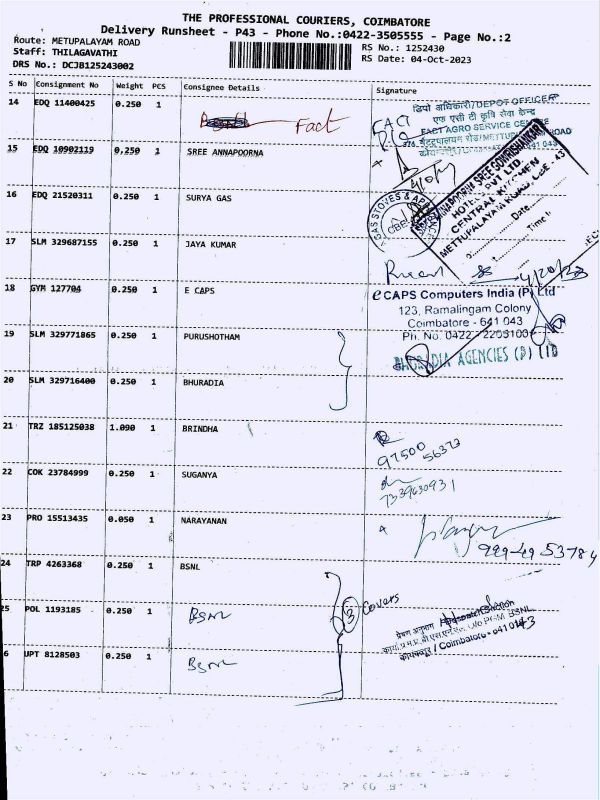 THE PROFESSIONAL COURIERS, COIMBATORE
Delivery Runsheet - P43 - Phone No.:0422-3505555 - Page No.:2
Route: METUPALAYAM ROAD
Staff: THILAGAVATHI
DRS No.: DCJB125243002
RS No.: 1252430
RS Date: 04-Oct-2023
S No Consignment No Weight PCS Consignee Details Signature
14 EDQ 11400425 0.250 1 Fact
FACT
डिपो अधिकारी/DEPOT OFFICER
एफ एसी टी कृषि सेवा केन्द्र
FACT AGRO SERVICE CENTRE
15 EDQ 10902119 0.250 1 SREE ANNAPOORNA
HOTELS PVT LTD.
CENTRAL KITCHEN
METTUPALAYAM ROAD, CBE - 43
Date
Time
16 EDQ 21520311 0.250 1 SURYA GAS
GAS STOVES &
CBE
17 SLM 329687155 0.250 1 JAYA KUMAR
4/10/23
18 GYM 127704 0.250 1 E CAPS
e CAPS Computers India (P) Ltd
123, Ramalingam Colony
Coimbatore - 641 043
Ph. No. 0422 - 2203100
19 SLM 329771865 0.250 1 PURUSHOTHAM
AGENCIES (P) LTD
20 SLM 329716400 0.250 1 BHURADIA
21 TRZ 185125038 1.090 1 BRINDHA
97500
56373
22 COK 23784999 0.250 1 SUGANYA
7339630931
23 PRO 15513435 0.050 1 NARAYANAN
24 TRP 4263368 0.250 1 BSNL
25 POL 1193185 0.250 1 BSNL
3 Covers
6 UPT 8128503 0.250 1 BSNL
BSNL
कोयम्बत्तूर / Coimbatore - 641 043